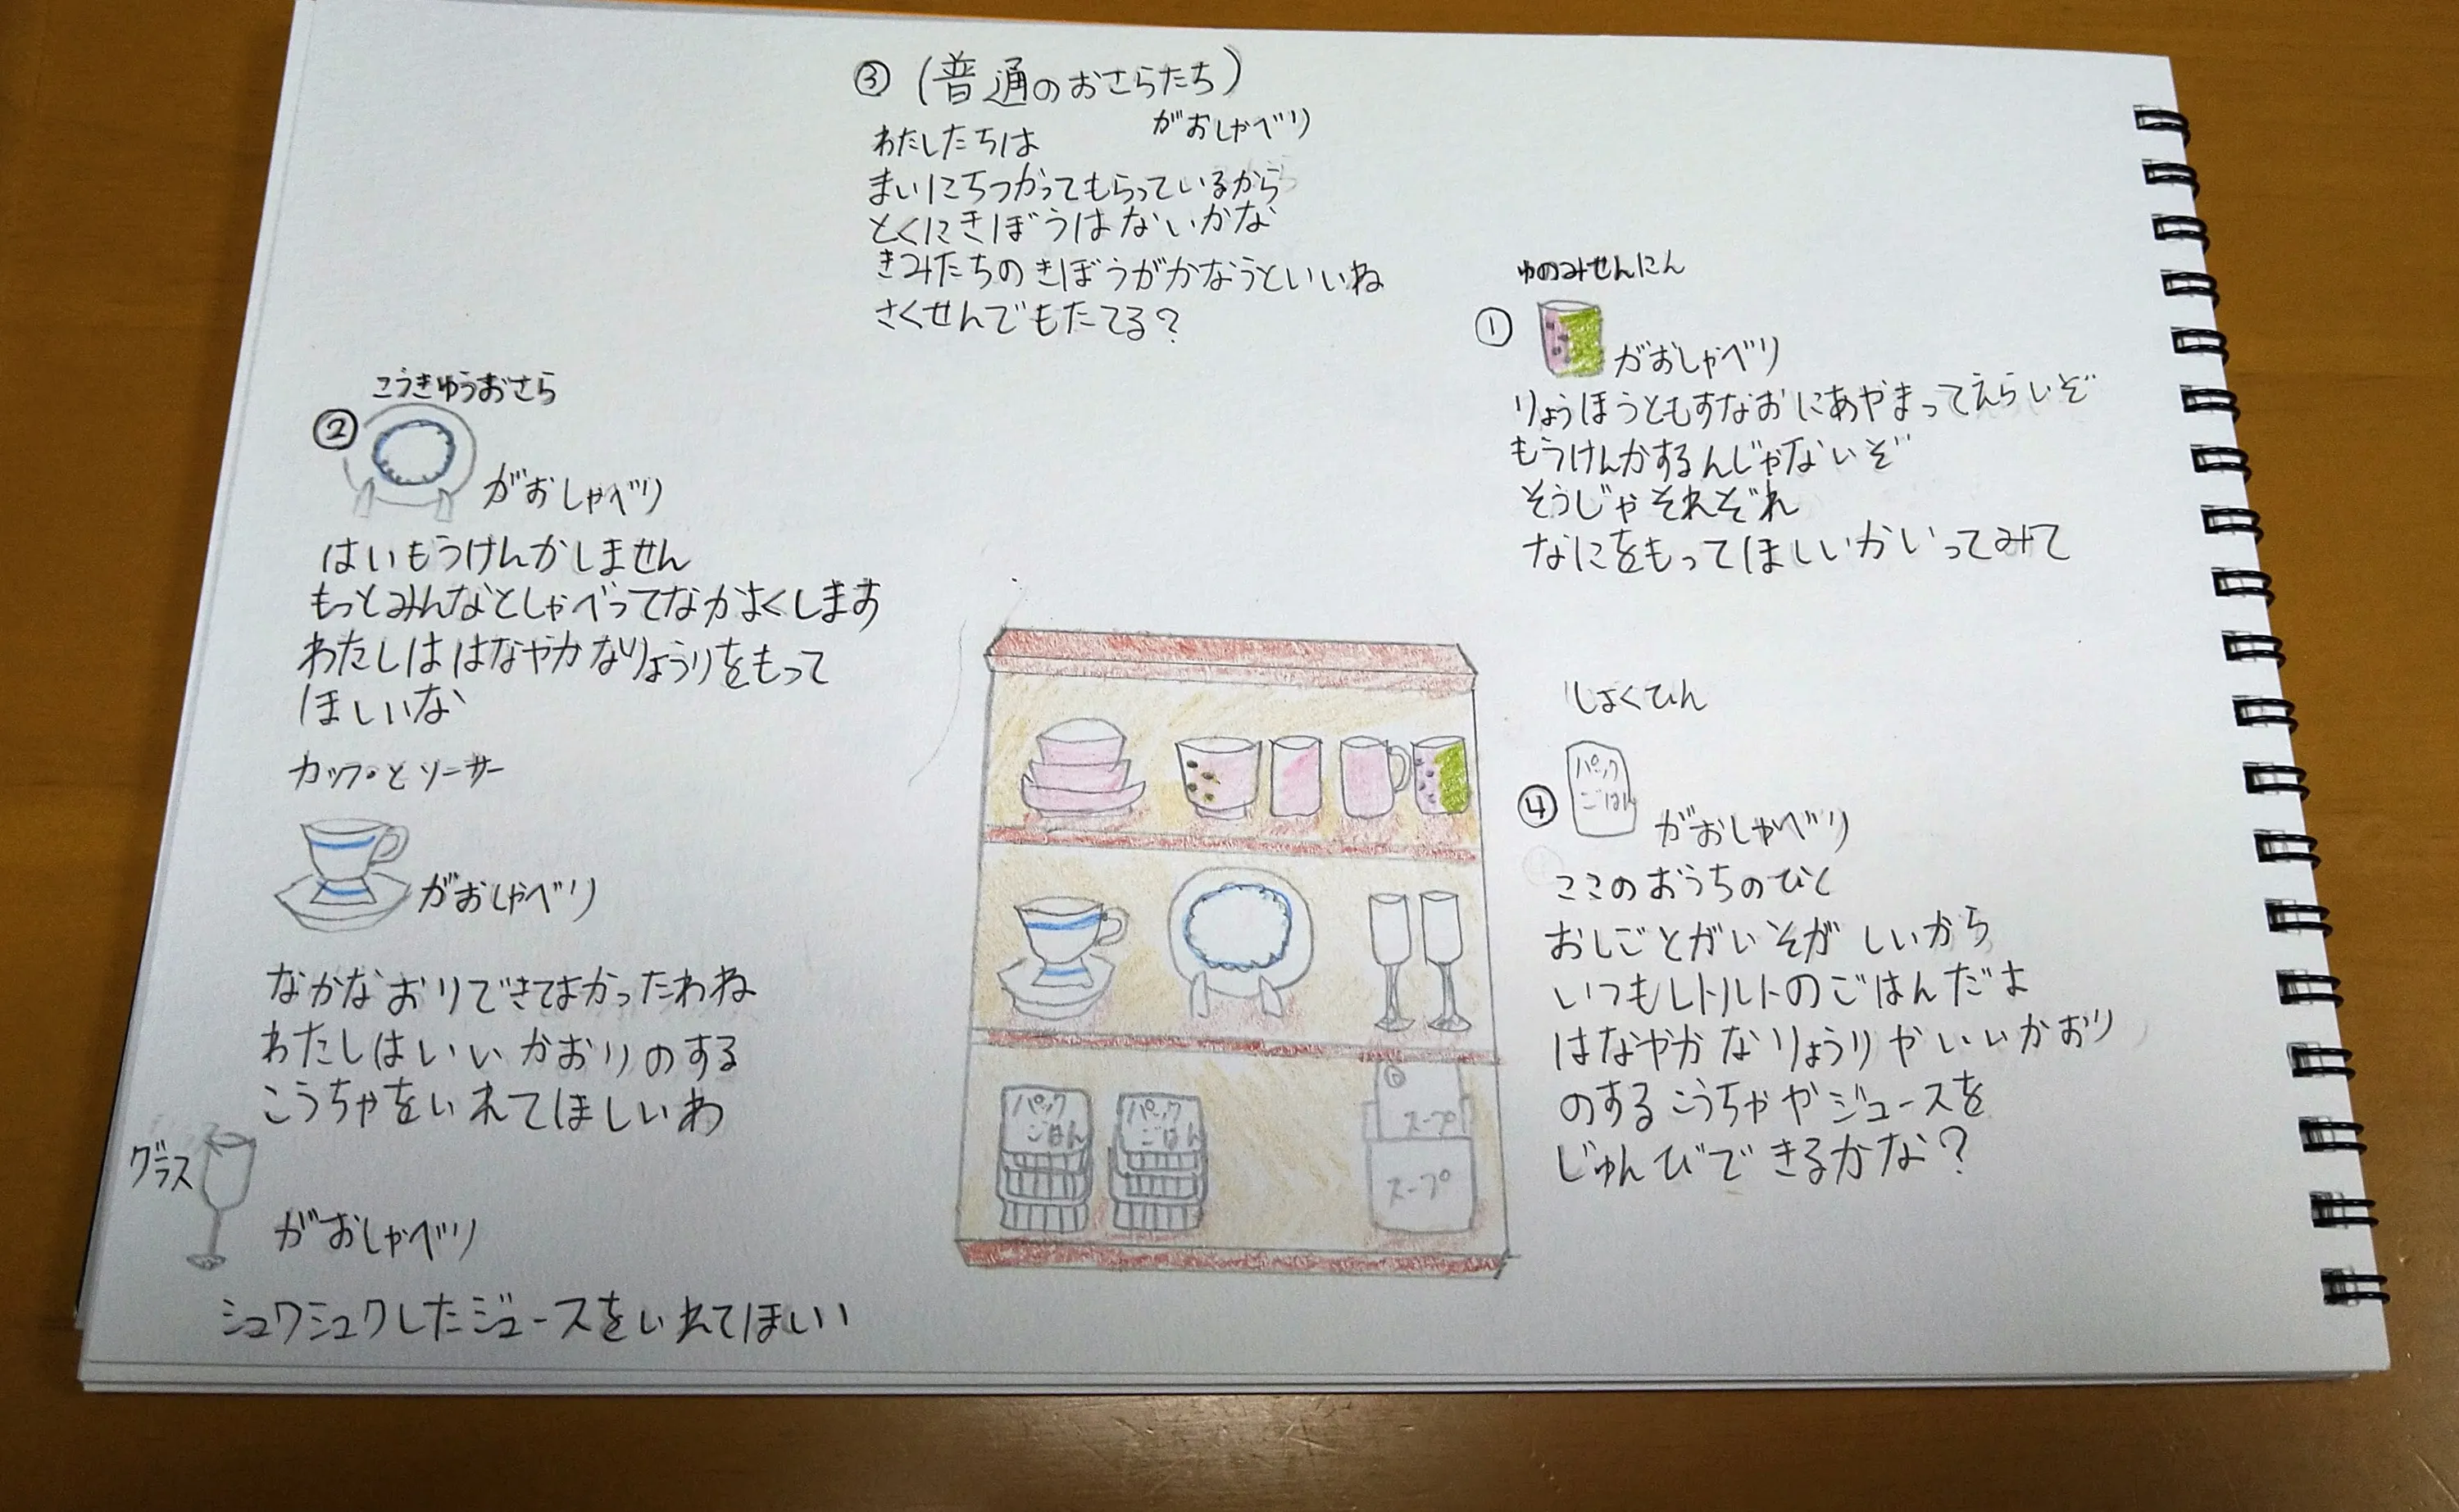 ③(普通のおさらたち)
がおしゃべり
わたしたちは
まいにちつかってもらっているから
とくにきぼうはないかな
きみたちのきぼうがかなうといいね
さくせんでもたてる?
ゆのみせんにん
①
がおしゃべり
りょうほうともすなおにあやまってえらいぞ
もうけんかするんじゃないぞ
そうじゃそれぞれ
なにをもってほしいかいってみて
こうきゅうおさら
②
がおしゃべり
はいもうけんかしません
もっとみんなとしゃべってなかよくします
わたしははなやかなりょうりをもって
ほしいな
カップとソーサー
がおしゃべり
なかなおりできてよかったわね
わたしはいいかおりのする
こうちゃをいれてほしいわ
グラス
がおしゃべり
シュワシュワしたジュースをいれてほしい
しょくひん
④
パック
ごはん
がおしゃべり
ここのおうちのひと
おしごとがいそがしいから
いつもレトルトのごはんだよ
はなやかなりょうりやいいかおり
のするこうちゃやジュースを
じゅんびできるかな?
パック
ごはん
パック
ごはん
スープ
スープ